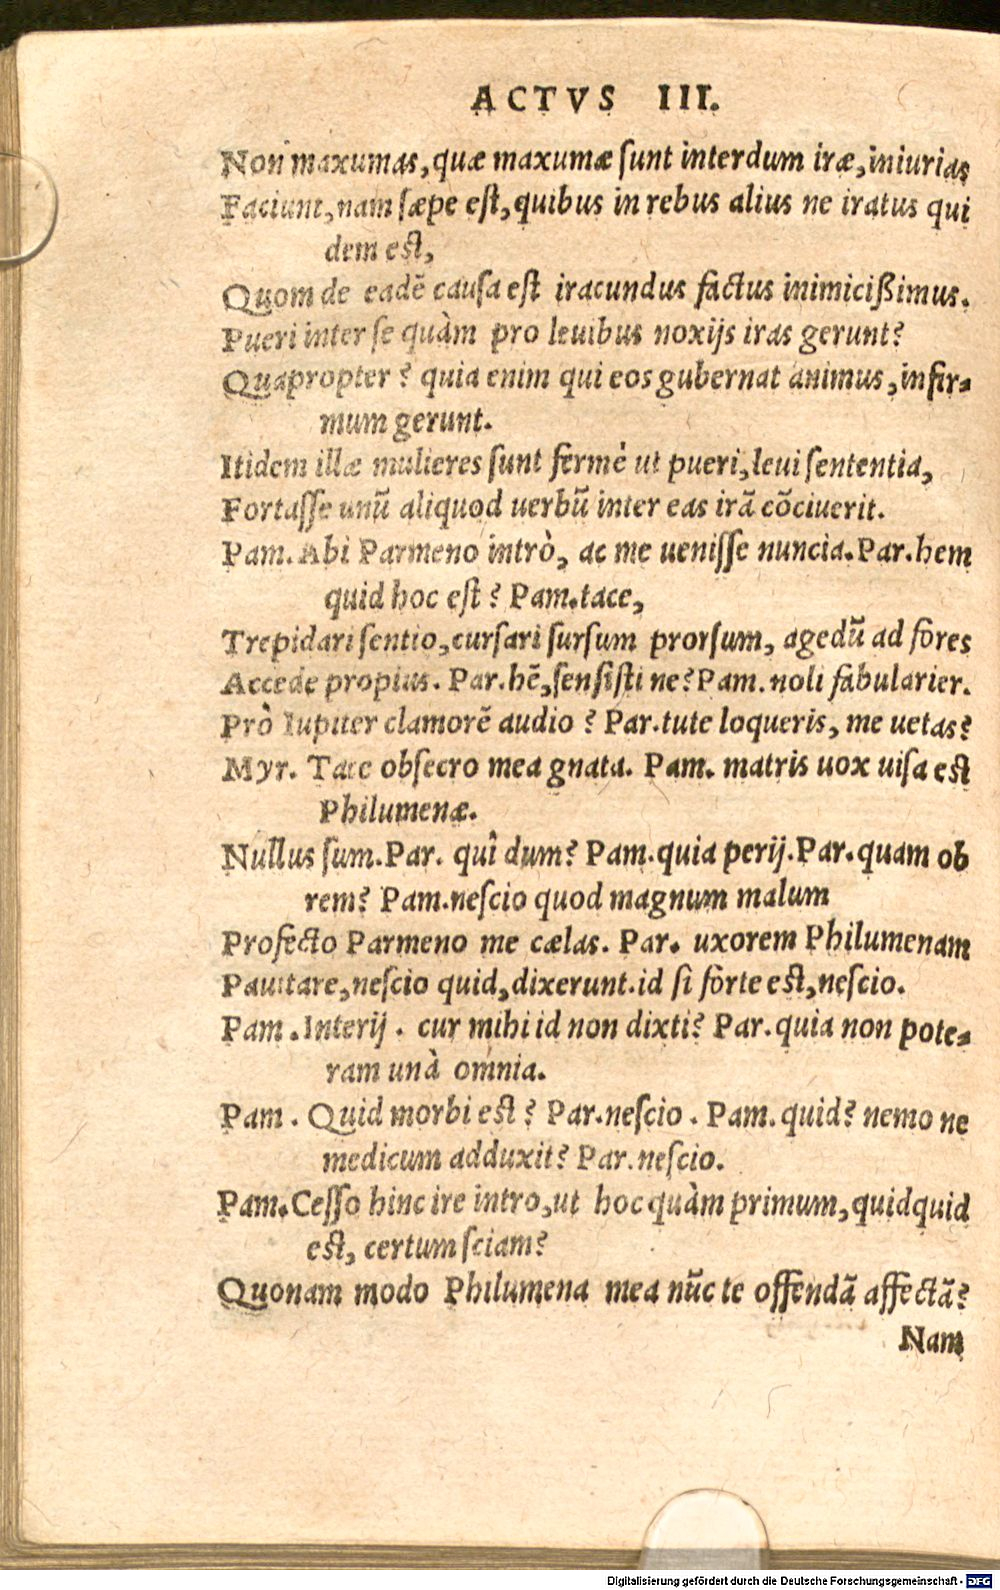 ACTVS III.
Non maxumas, quæ maxumæ ſunt interdum iræ, iniurias
Faciunt, nam ſæpe eſt, quibus in rebus alius ne iratus qui
dem eſt,
Quom de eadē cauſa eſt iracundus factus inimicißimus.
Pueri inter ſe quàm pro leuibus noxijs iras gerunt?
Quapropter? quia enim qui eos gubernat animus, infir-
mum gerunt.
Itidem illæ mulieres ſunt fermè ut pueri, leui ſententia,
Fortaſſe unū aliquod uerbū inter eas irā cōciuerit.
Pam. Abi Parmeno intrò, ac me ueniſſe nuncia. Par. hem
quid hoc eſt? Pam. tace,
Trepidari ſentio, curſari ſurſum prorſum, agedū ad fores
Accede propius. Par. hē, ſenſiſti ne? Pam. noli fabularier.
Prò Iupiter clamorē audio? Par. tute loqueris, me uetas?
Myr. Tace obſecro mea gnata. Pam. matris uox uiſa eſt
Philumenæ.
Nullus ſum. Par. quî dum? Pam. quia perij. Par. quam ob
rem? Pam. neſcio quod magnum malum
Profecto Parmeno me cælas. Par. uxorem Philumenam
Pauitare, neſcio quid, dixerunt. id ſi forte eſt, neſcio.
Pam. Interij. cur mihi id non dixti? Par. quia non pote-
ram unà omnia.
Pam. Quid morbi eſt? Par. neſcio. Pam. quid? nemo ne
medicum adduxit? Par. neſcio.
Pam. Ceſſo hinc ire intro, ut hoc quàm primum, quidquid
eſt, certum ſciam?
Quonam modo Philumena mea nūc te offendā affectā?
Nam
Digitalisierung gefördert durch die Deutsche Forschungsgemeinschaft - DFG